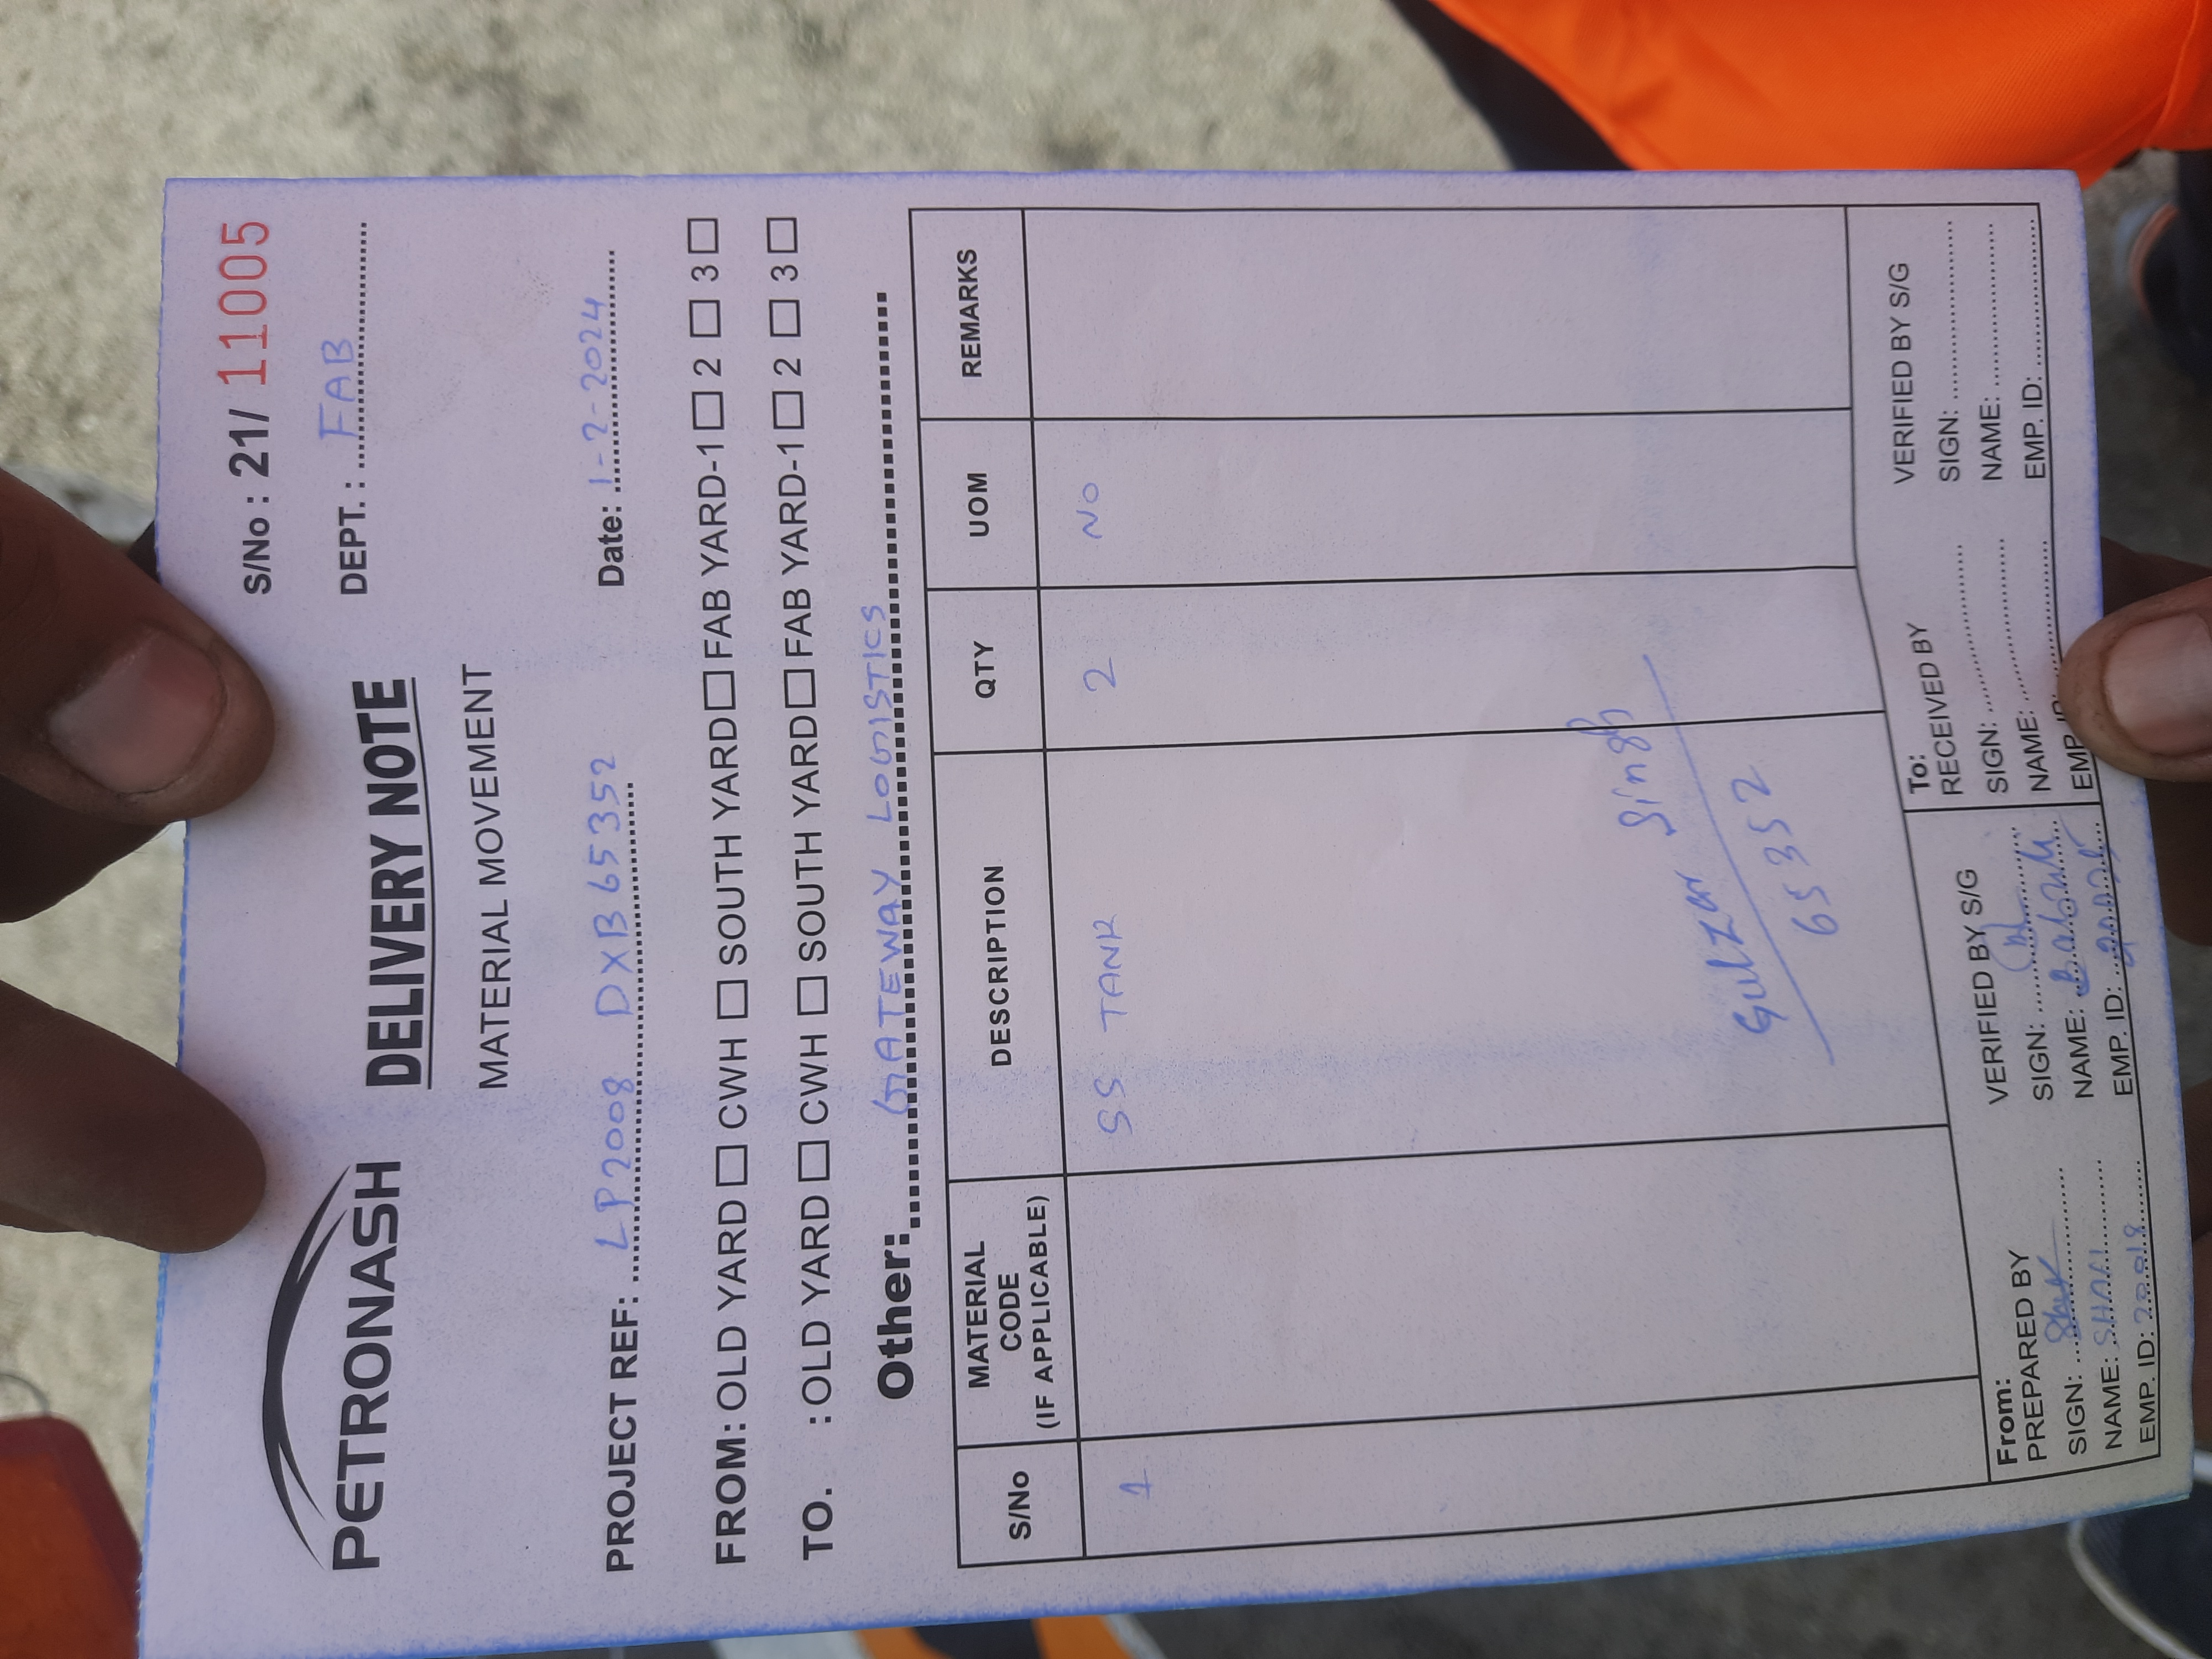 S/No : 21/ 11005
PETRONASH
DEPT. : FAB
DELIVERY NOTE
MATERIAL MOVEMENT
PROJECT REF: LP2008 DXB65352
Date: 1-2-2024
FROM: OLD YARD ☐ CWH ☐ SOUTH YARD ☐ FAB YARD-1 ☐ 2 ☐ 3 ☐
TO. : OLD YARD ☐ CWH ☐ SOUTH YARD ☐ FAB YARD-1 ☐ 2 ☐ 3 ☐
Other: GATEWAY LOGISTICS
S/No MATERIAL CODE (IF APPLICABLE) DESCRIPTION QTY UOM REMARKS
1 SS TANK 2 NO
Gulzar Singh
65352
From:
PREPARED BY
SIGN:
NAME: SHAFI
EMP. ID: 20018
VERIFIED BY S/G
SIGN:
NAME:
EMP. ID:
To:
RECEIVED BY
SIGN:
NAME:
EMP ID:
VERIFIED BY S/G
SIGN:
NAME:
EMP. ID: